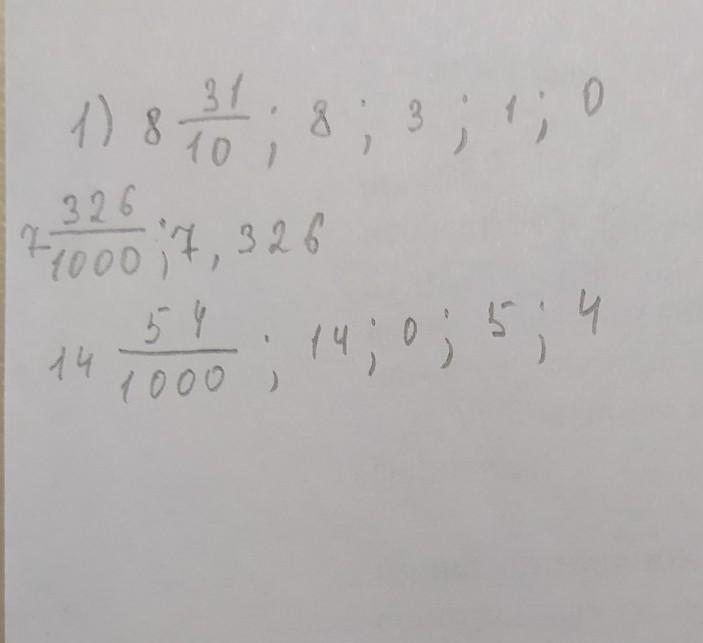 1) 8 31/10 ; 8 ; 3 ; 1 ; 0
7 326/1000 ; 7, 326
14 54/1000 ; 14 ; 0 ; 5 ; 4